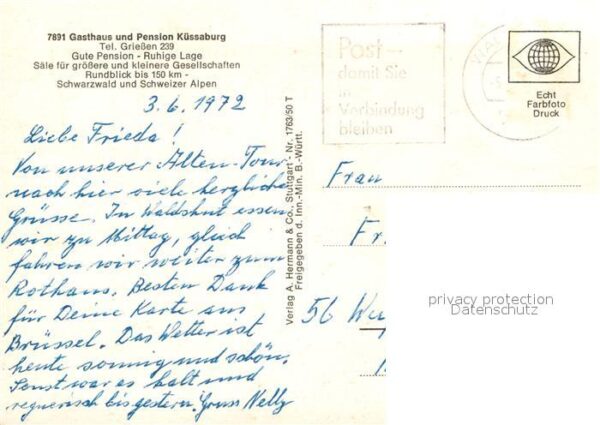 7891 Gasthaus und Pension Küssaburg
Tel. Grießen 239
Gute Pension - Ruhige Lage
Säle für größere und kleinere Gesellschaften
Rundblick bis 150 km -
Schwarzwald und Schweizer Alpen
3.6.1972
Liebe Frieda!
Von unserer Alten-Tour
nach hier viele herzliche
Grüsse. In Waldshut essen
wir zu Mittag, gleich
fahren wir weiter zum
Rothaus. Besten Dank
für Deine Karte aus
Brüssel. Das Wetter ist
heute sonnig und schön.
Sonst war es kalt und
regnerisch bis gestern. Gruss Nelly
Verlag A. Hermann & Co., Stuttgart - Nr. 1763/50 T
Freigegeben d. Inn.-Min. B.-Württ.
Post –
damit Sie
in
Verbindung
bleiben
WA
Echt
Farbfoto
Druck
Frau
Fr
56 Wu
privacy protection
Datenschutz